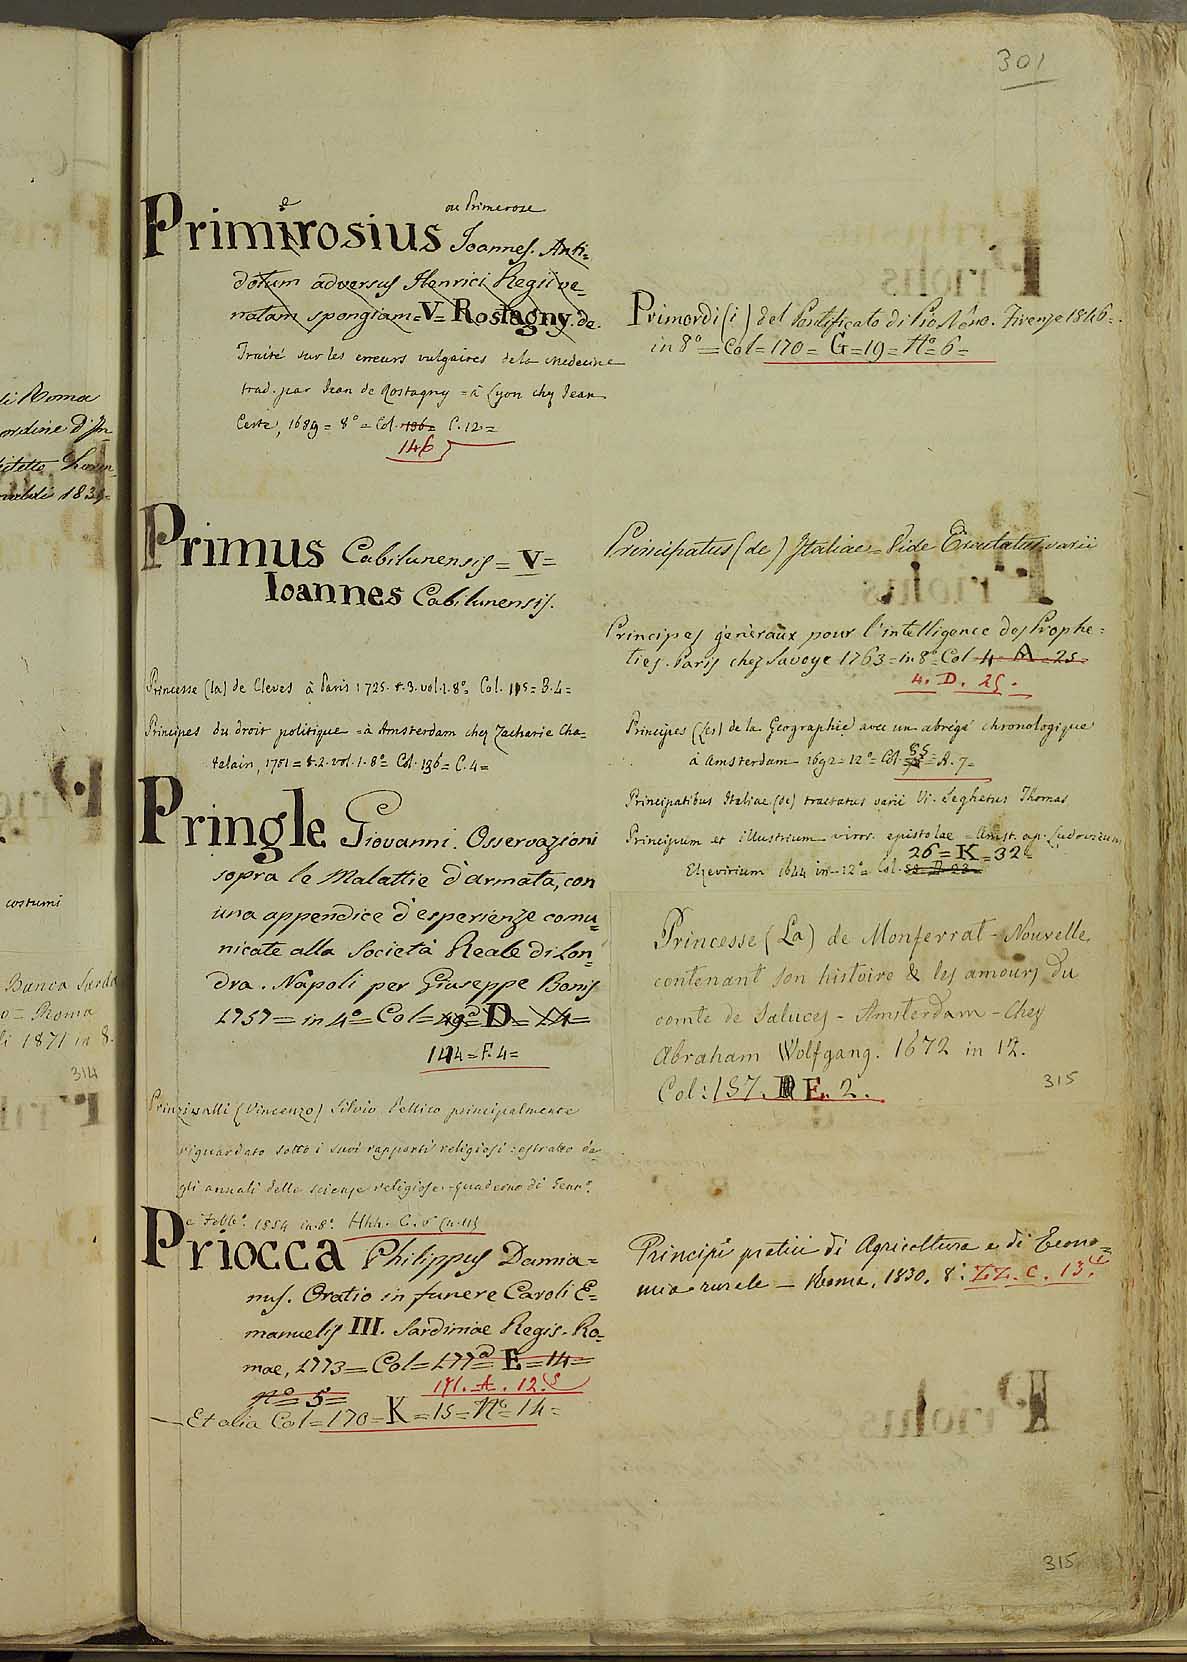 301
ou Primerose
e
Primirosius Joannes. Anti=
dotum adversus Henrici Regii ve=
natam spongiam = V = Rostagny. de.
Traité sur les erreurs vulgaires de la medecine
trad. par Jean de Rostagny = à Lyon chez Jean
Certe, 1689 = 8° = Col. 186 = C. 12 =
146
Primus Cabilunensis = V =
Ioannes Cabilunensis.
Princesse (la) de Cleves à Paris 1725. t. 3. vol. 1. 8° = Col. 115 = B. 4 =
Principes du droit politique = à Amsterdam chez Zacharie Cha=
telain, 1751 = t. 2. vol. 1. 8° = Col. 136 = C. 4 =
Pringle Giovanni. Osservazioni
sopra le Malattie d'armata, con
una appendice d'esperienze comu=
nicate alla Società Reale di Lon=
dra. Napoli per Giuseppe Bonis
1757 = in 4° = Col = 49 = D = 14 =
144 = F. 4 =
Prinzivalli (Vincenzo) Silvio Pellico principalmente
riguardato sotto i suoi rapporti religiosi: estratto da=
gli annali delle scienze religiose. Quaderno di Genn°.
e Febb°. 1854 in 8°. Hhh. C. 6 (n. 11)
Priocca Philippus Damia=
nus. Oratio in funere Caroli E=
manuelis III. Sardiniae Regis. Ro=
mae, 1773 = Col = 177 = E = 14 =
N° = 5 =
171. A. 12.
Et alia Col = 170 = K = 15 = N° = 14 =
Primordi (i) del Pontificato di Pio Nono. Firenze 1846 =
in 8° = Col = 170 = G = 19 = N° = 6 =
Principatus (de) Italiae = Vide Tractatus varii
Principes généraux pour l'intelligence des Prophe=
ties. Paris chez Savoye 1763 = in 8° = Col 4. A. 25.
4. D. 25.
Principes (les) de la Geographie avec un abrégé chronologique
à Amsterdam 1692 = 12° = Col. 85 = A. 7 =
Principatibus Italiae (de) tractatus varii Vi. Seghetus Thomas
Principum et illustrium viror. epistolae = Amst. ap. Ludovicum
26 = K = 32
Elzevirium 1644 in 12° = Col.
Princesse (La) de Monferrat - Nouvelle
contenant son histoire & les amours du
comte de Saluces - Amsterdam - Chez
Abraham Wolfgang. 1672 in 12.
Col: 157. E. 2.
315
Principi pratici di Agricoltura e di Econo=
mia rurale — Roma, 1830. 8°. ZZ. C. 13.
315